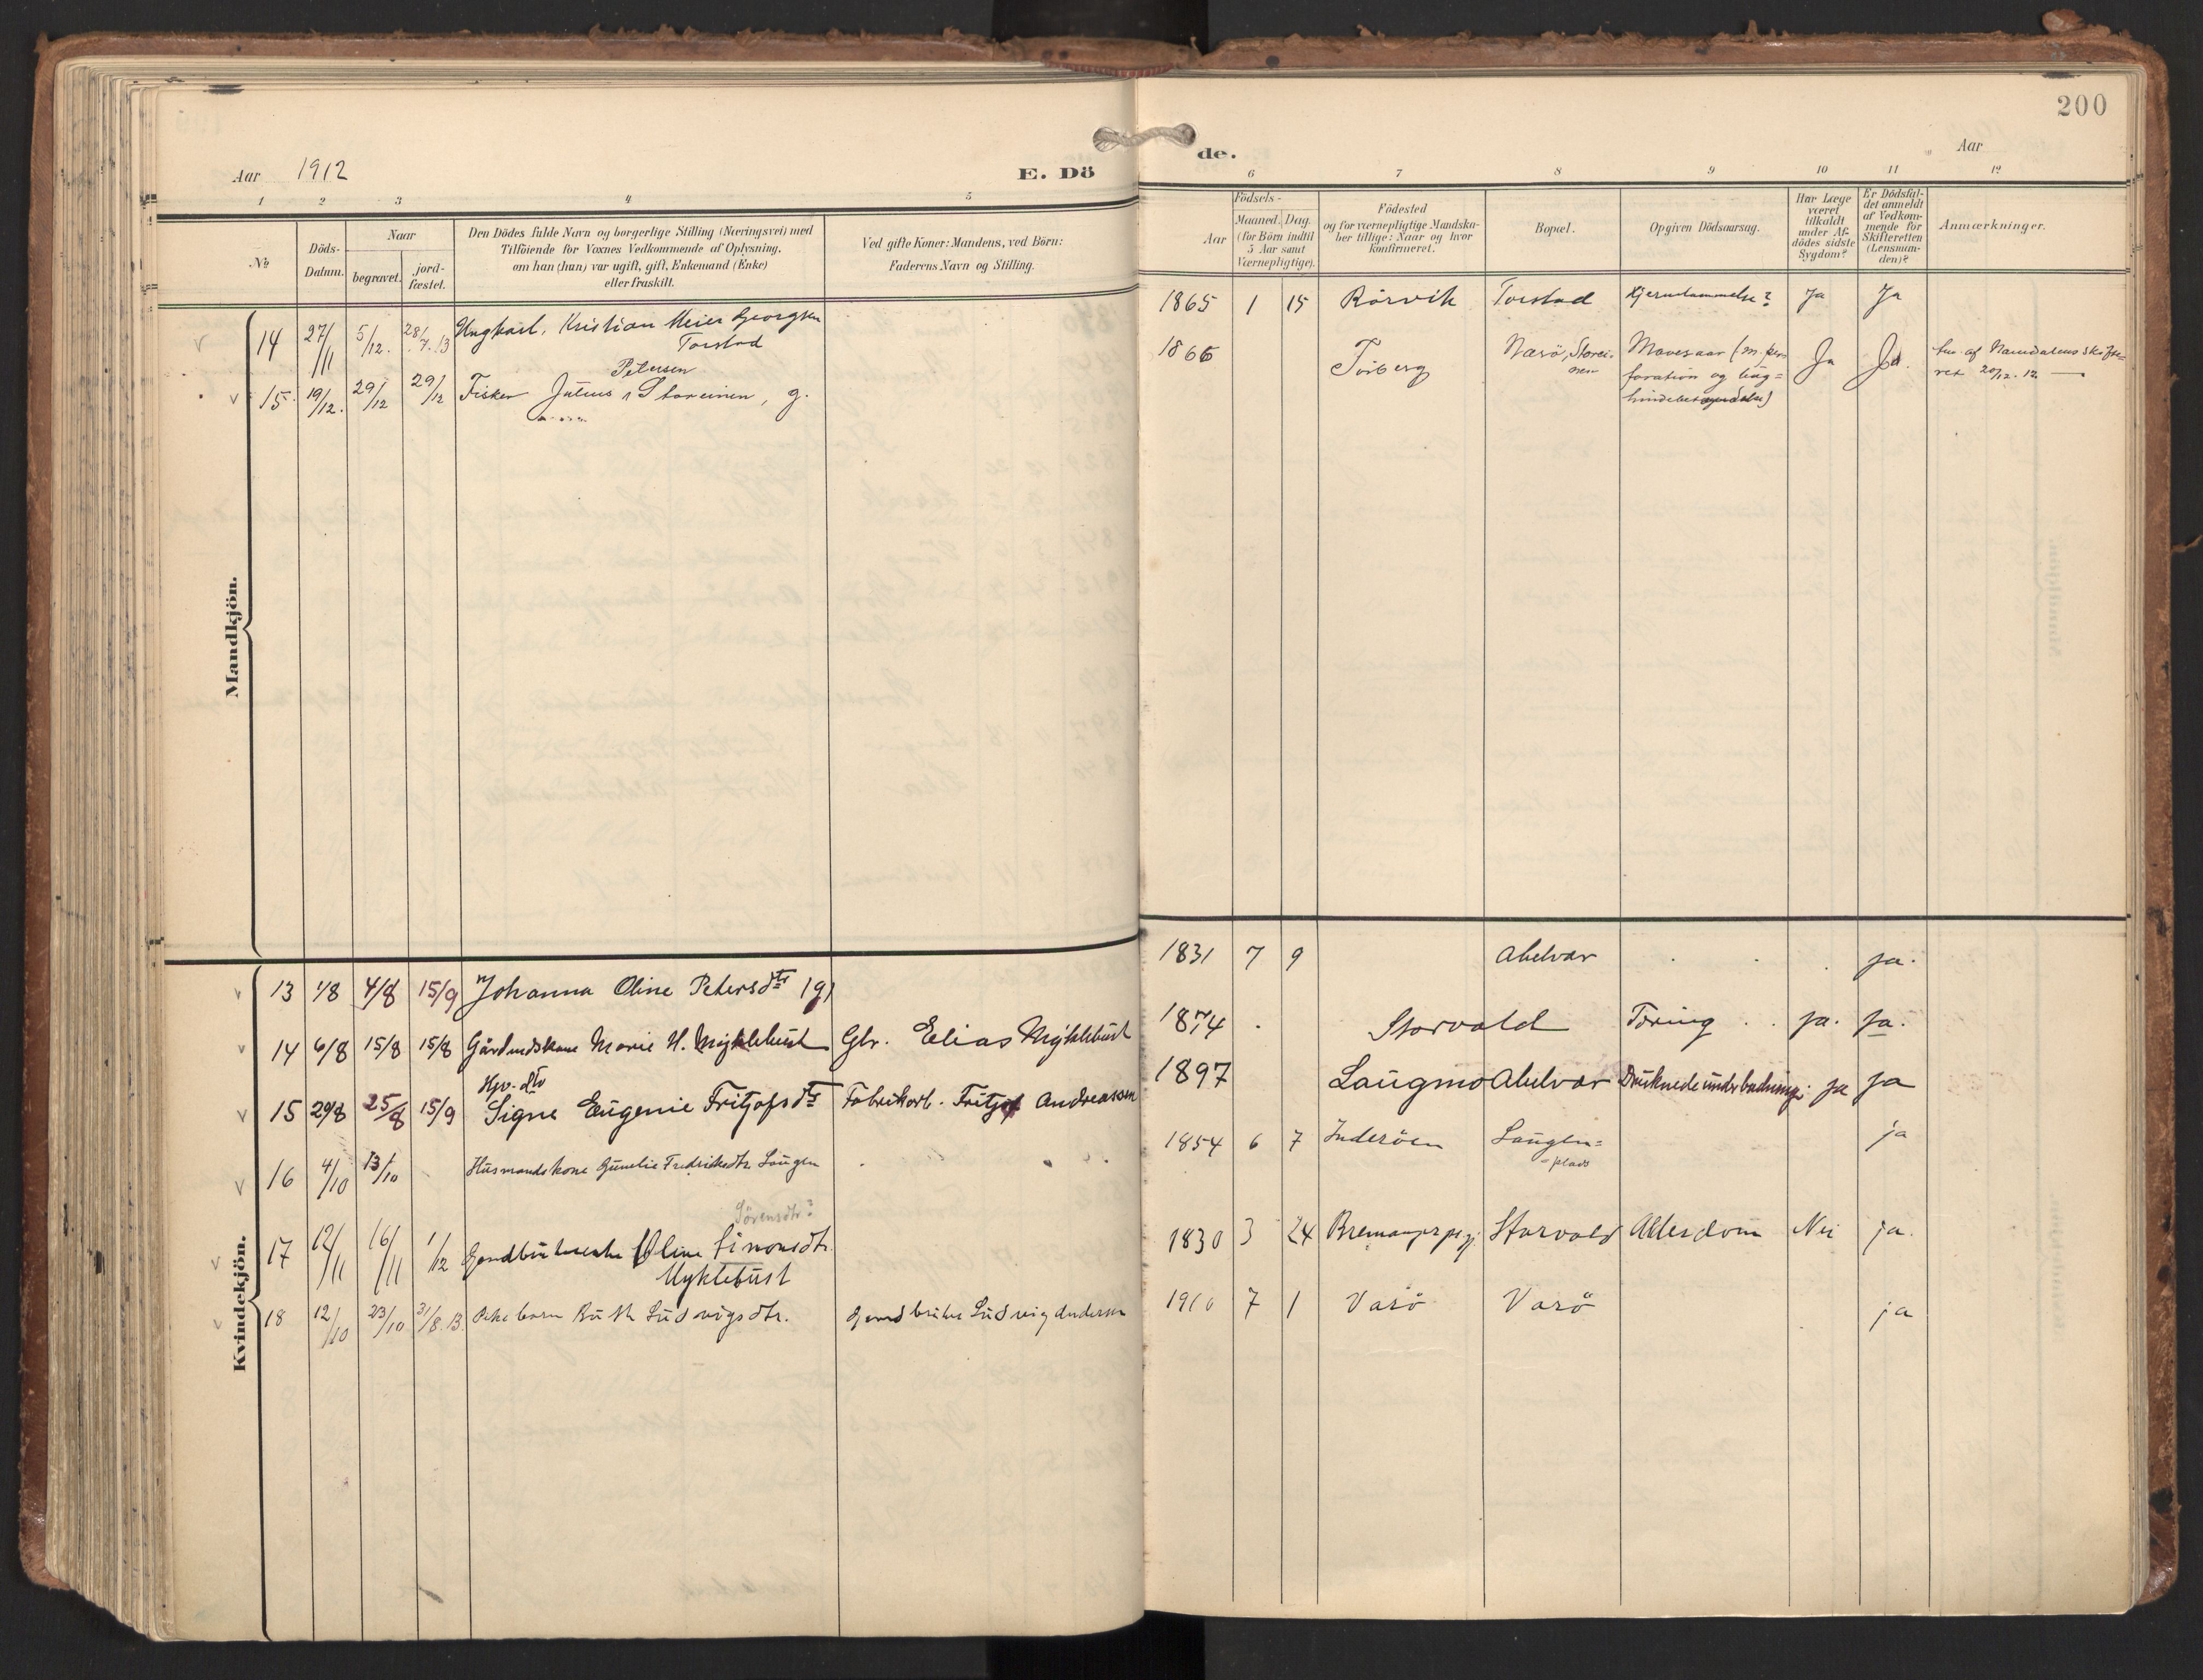 200
Aar 1912
E. Dö
de.
Aar
1 2 3 4 5 6 7 8 9 10 11 12
No
Döds-
Datum.
Naar
begravet.
jord-
fæstet.
Den Dödes fulde Navn og borgerlige Stilling (Næringsvei) med
Tilföiende for Voxnes Vedkommende af Oplysning,
om han (hun) var ugift, gift, Enkemand (Enke)
eller fraskilt.
Ved gifte Koner: Mandens, ved Börn:
Faderens Navn og Stilling.
Födsels-
Aar
Maaned. Dag.
(for Börn indtil
5 Aar samt
Værnepligtige).
Födested
og for værnepligtige Mandska-
ber tillige: Naar og hvor
konfirmeret.
Bopæl.
Opgiven Dödsaarsag.
Har Læge
været
tilkaldt
under Af-
dödes sidste
Sygdom?
Er Dödsfal-
det anmeldt
af Vedkom-
mende for
Skifteretten
(Lensman-
den)?
Anmærkninger.
Mandkjön.
14 27/11 5/12. 28/7.13 Ungkarl, Kristian Meier Georgsen
Torstad
1865 1 15 Rörvik Torstad Hjernelammelse? Ja Ja
15. 19/12. 29/12 29/12 Fisker Julius Petersen Storeinen, g.
1866 Torberg Nærö, Storei-
nen
Mavesaar (m. per-
foration og bug-
Ja Ja. af Namdalens skifte-
ret 20/12. 12.
Kvindekjön.
13 1/8 4/8 15/9 Johanna Oline Petersdtr (g)
1831 7 9 Abelvær ja.
14 6/8 15/8 15/8 Gårdmdskone Marie H. Myklebust Gbr. Elias Myklebust
1874 Storvold Tæring ja. ja.
15 20/8 25/8 15/9 Signe Eugenie Fritjofsdtr Fabrikarb. Fritjof Andreassen
1897 Laugmo Abelvær Druknede under badning. ja ja
16 4/10 13/10 Husmandskone Gunelie Fredrikedtr. Laugen
1854 6 7 Inderöen Laugen=
=plads
ja
Sörensdtr?
17 12/11 16/11 1/12 Oline Simonsdtr.
Myklebust
1830 3 24 Bremanger Storvold Alderdom Nei ja.
18 12/10 23/10 31/8.13. Pikebarn Ruth Ludvigsdtr. Gaardbruker Ludvig Andersen
1910 7 1 Varö Varö ja